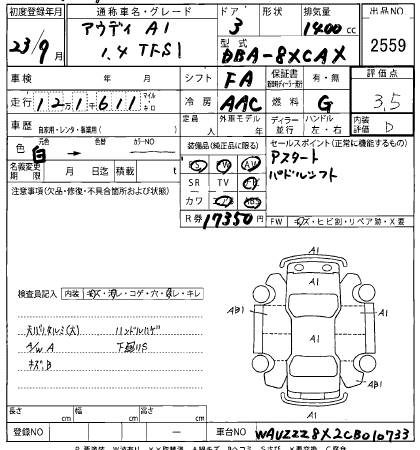 初度登録年月 通称車名・グレード ドア 形状 排気量 出品NO
23/9月 アウディ A1 3 1400cc
1.4 TFSI 型式 DBA-8XCAX 2559
車検 年 月 シフト FA 保証書 有・無 評価点
走行 121611 マイル キロ 冷房 AAC 燃料 G 3.5
車歴 自家用・レンタ・事業用( ) 定員 人 外車モデル 年 ディーラー 並行 ハンドル 左・右 内装評価 D
色 元色 白 → 色替 カラーNO 装備品(純正品に限る) セールスポイント(正常に機能するもの)
名義変更期限 月 日迄 積載 t PS PW AW アスタート
注意事項(欠品・修復・不具合箇所および状態) SR TV パドルシフト
カワ エアB ABS
R券 17350 FW キズ・ヒビ割・リペア跡・X要
検査員記入 内装 キズ・汚レ・コゲ・穴・スレ・キレ
ハンドルハゲ
A/W A 下回りS
キズ、B
A1
AB1 A1 AB1
A1
長さ cm 幅 cm 高さ cm
登録NO ー 車台NO WAUZZZ8X2CB010733